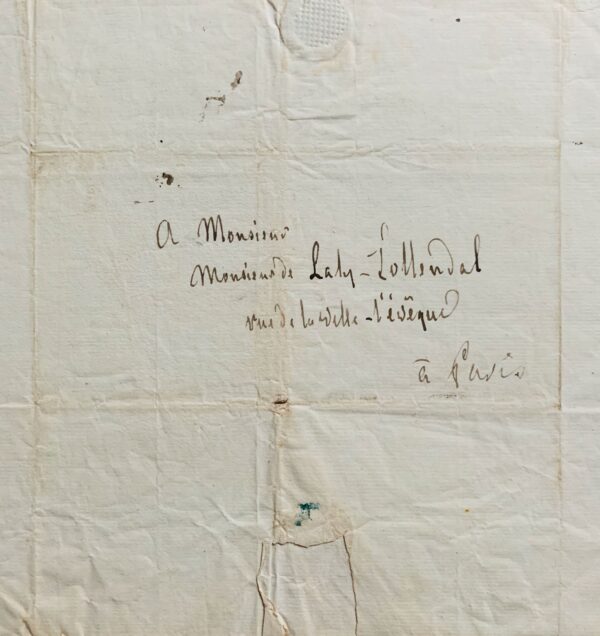 A Monsieur
Monsieur de Laly-Tollendal
rue de la ville-l'évêque
à Paris